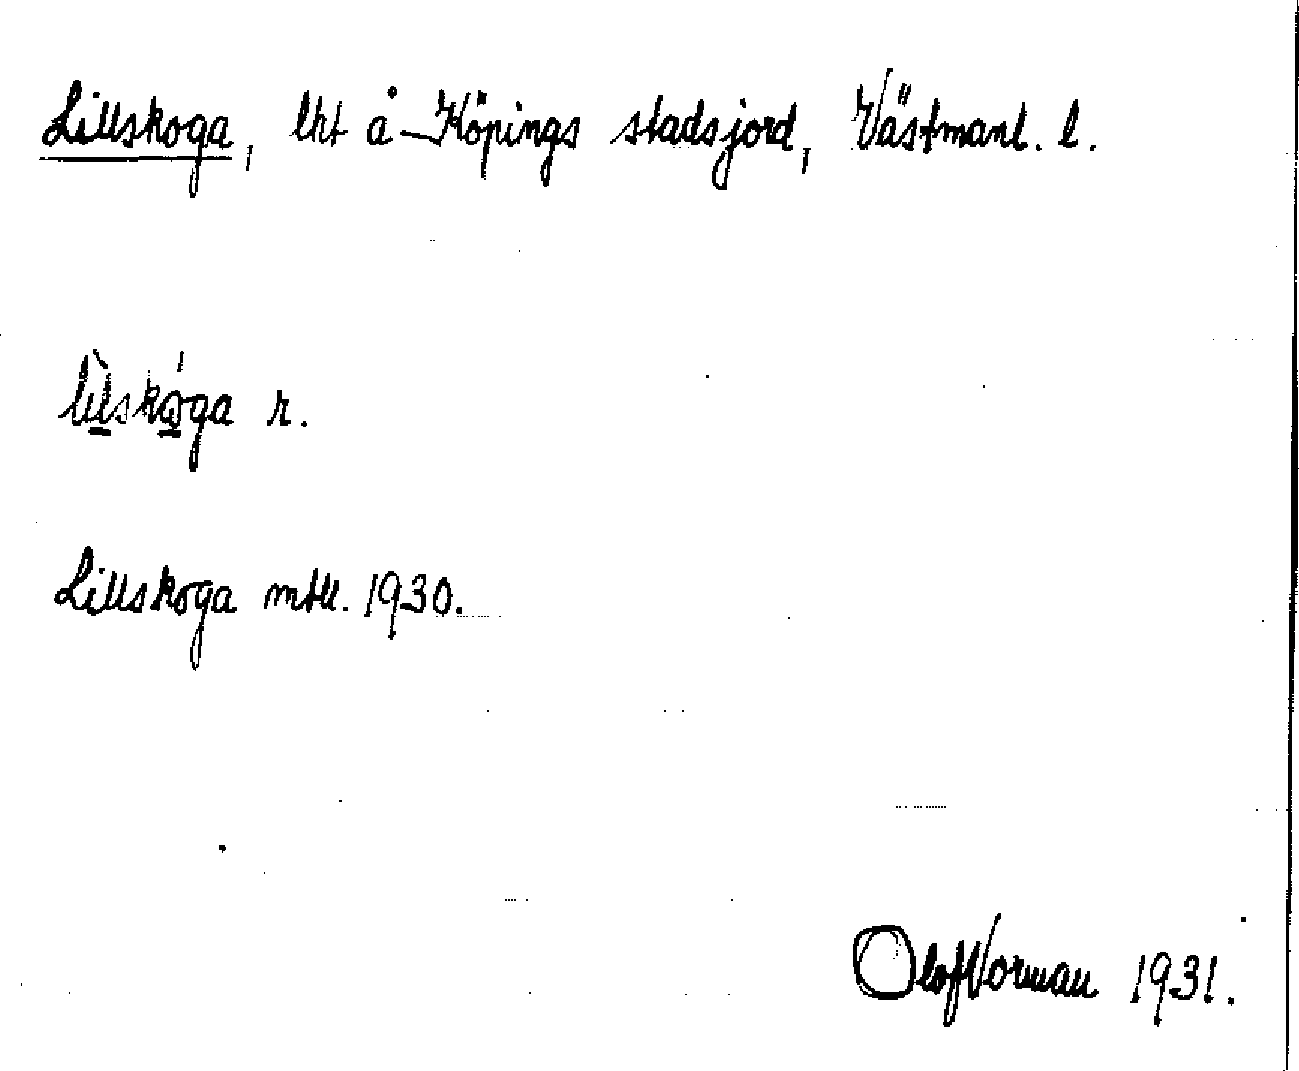 Lillskoga, lht å Köpings stadsjord, Västmanl. l.
lìlskóga r.
Lillskoga mtll. 1930.
Olof Norman 1931.